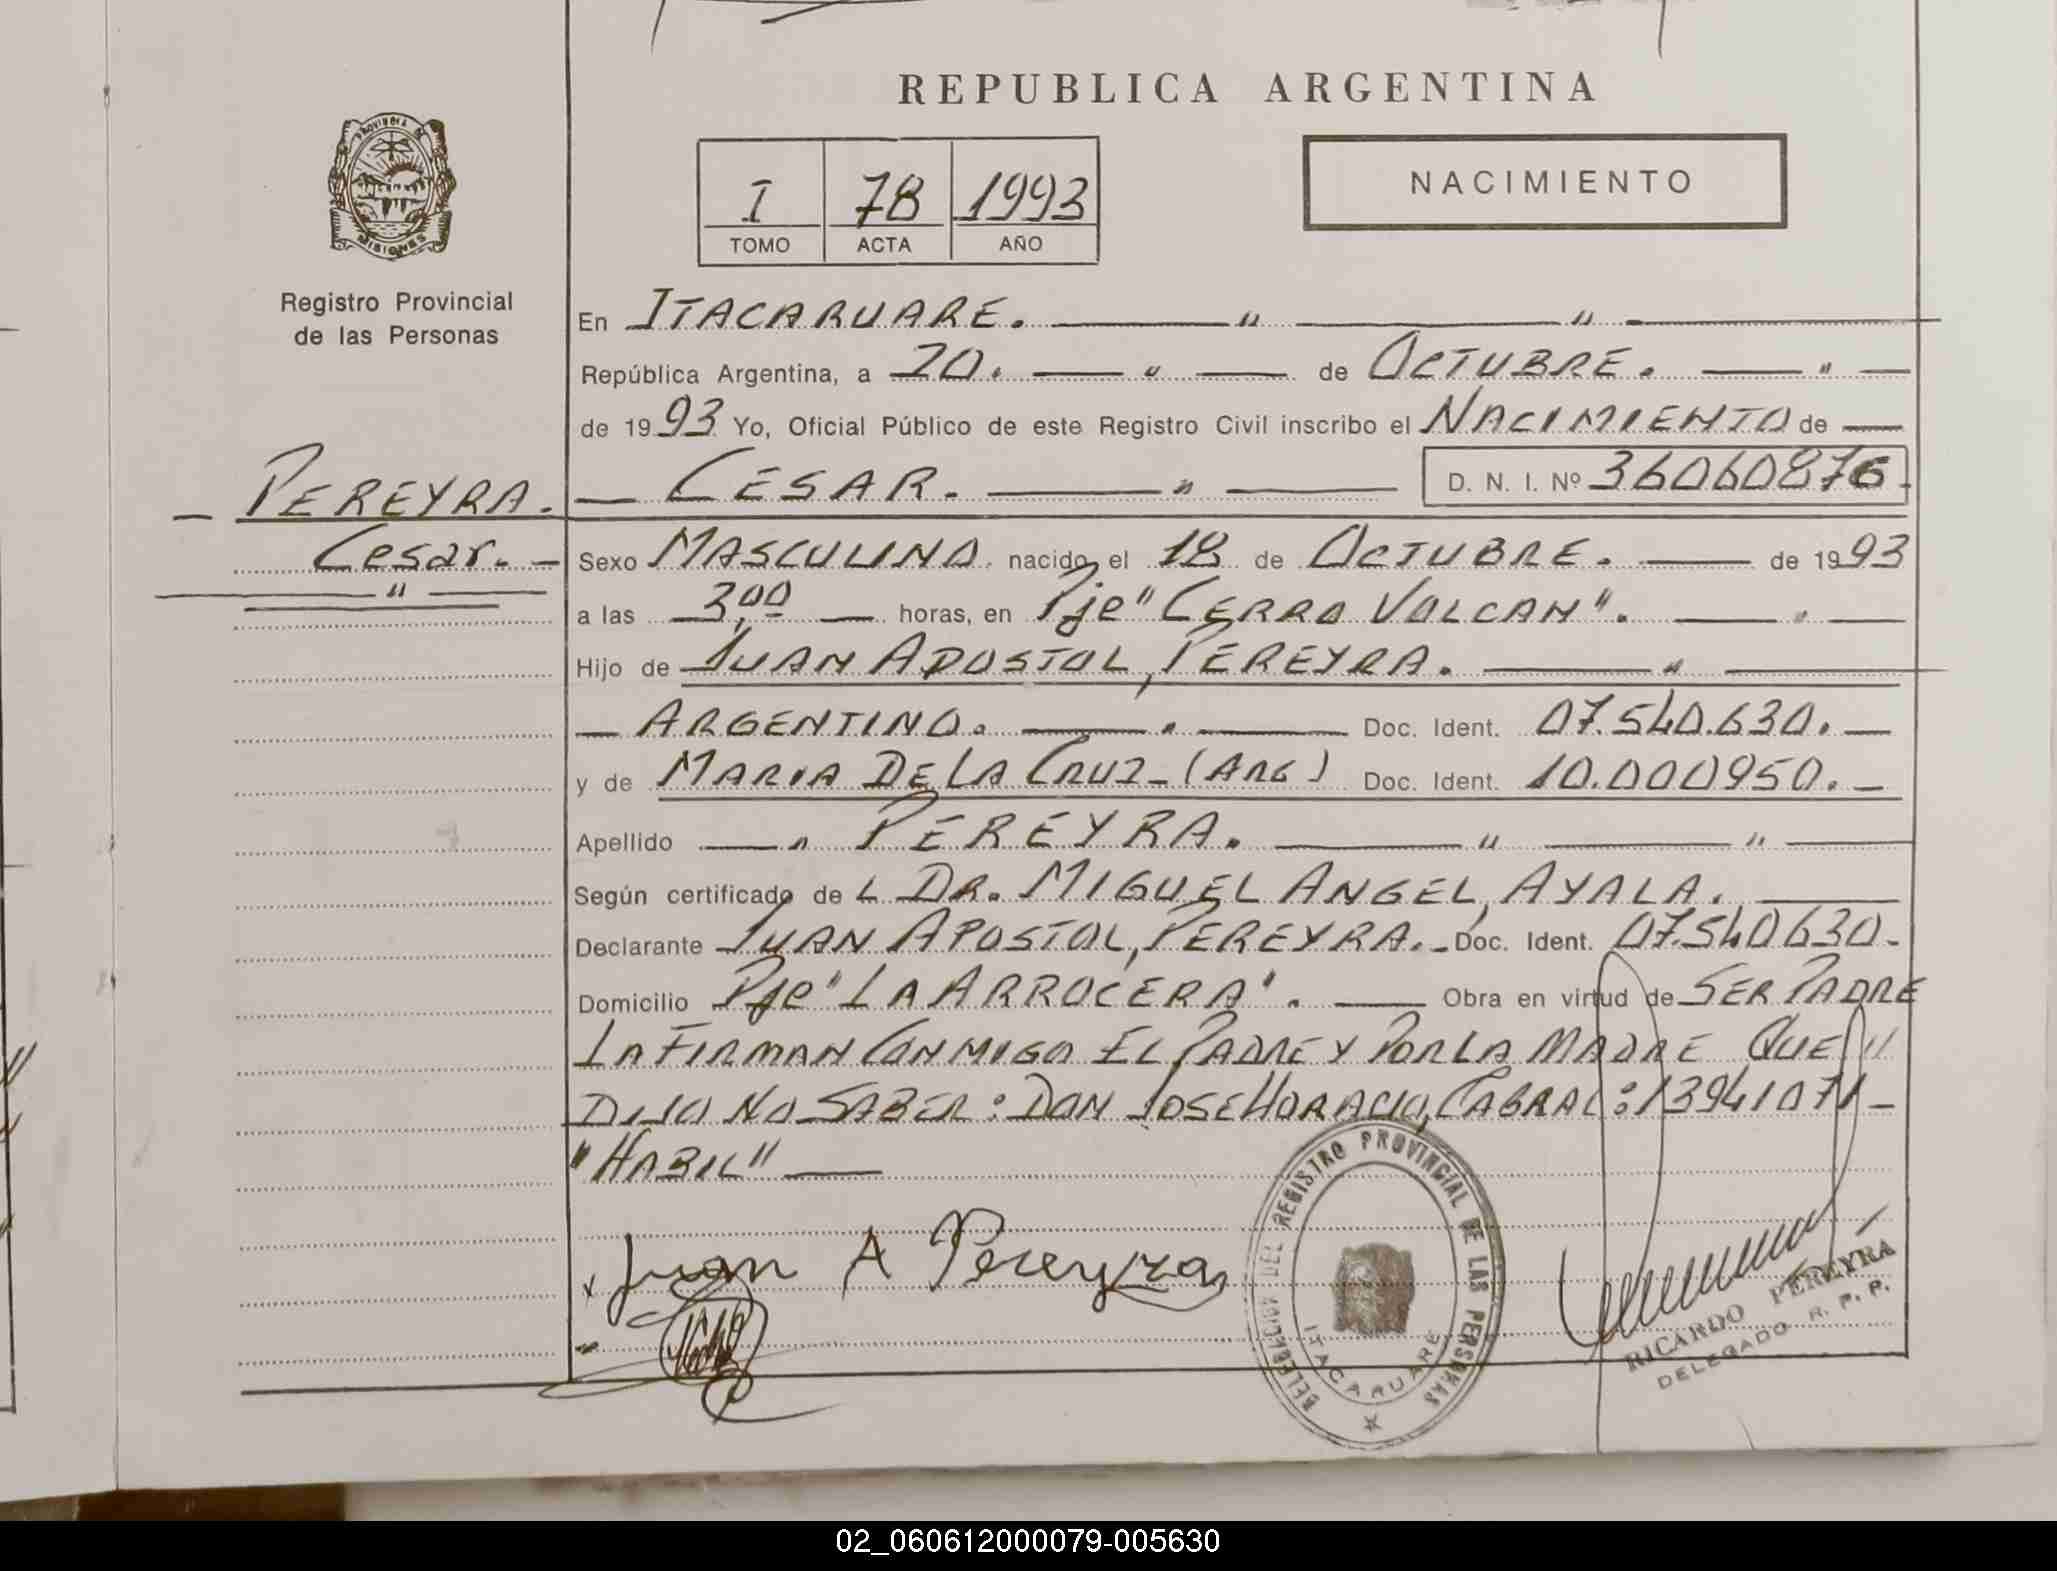 REPUBLICA ARGENTINA
PROVINCIA DE
MISIONES
Registro Provincial
de las Personas
I 78 1993
TOMO ACTA AÑO
NACIMIENTO
En ITACARUARE. " "
República Argentina, a 20. " de OCTUBRE. "
de 1993 Yo, Oficial Público de este Registro Civil inscribo el NACIMIENTO de
PEREYRA.
CESAR. " D. N. I. Nº 36060876.
Cesar.
"
Sexo MASCULINO nacido el 18 de OCTUBRE. de 1993
a las 3,00 horas, en Pje "CERRO VOLCAN". "
Hijo de JUAN APOSTOL, PEREYRA. "
ARGENTINO. " Doc. Ident. 07.540.630.
y de MARIA DE LA CRUZ - (ARG) Doc. Ident. 10.000950.
Apellido " PEREYRA. " "
Según certificado de L DR. MIGUEL ANGEL, AYALA.
Declarante JUAN APOSTOL, PEREYRA. Doc. Ident. 07.540630.
Domicilio Pje "LA ARROCERA". Obra en virtud de SER PADRE
LA FIRMAN CONMIGO EL PADRE Y POR LA MADRE QUE "
DIJO NO SABER: DON JOSE HORACIO, CABRAL: 13941071
"HABIL"
x Juan A Pereyra
DELEGACION DEL REGISTRO PROVINCIAL DE LAS PERSONAS
ITACARUARE
RICARDO PEREYRA
DELEGADO R. P. P.
02_060612000079-005630